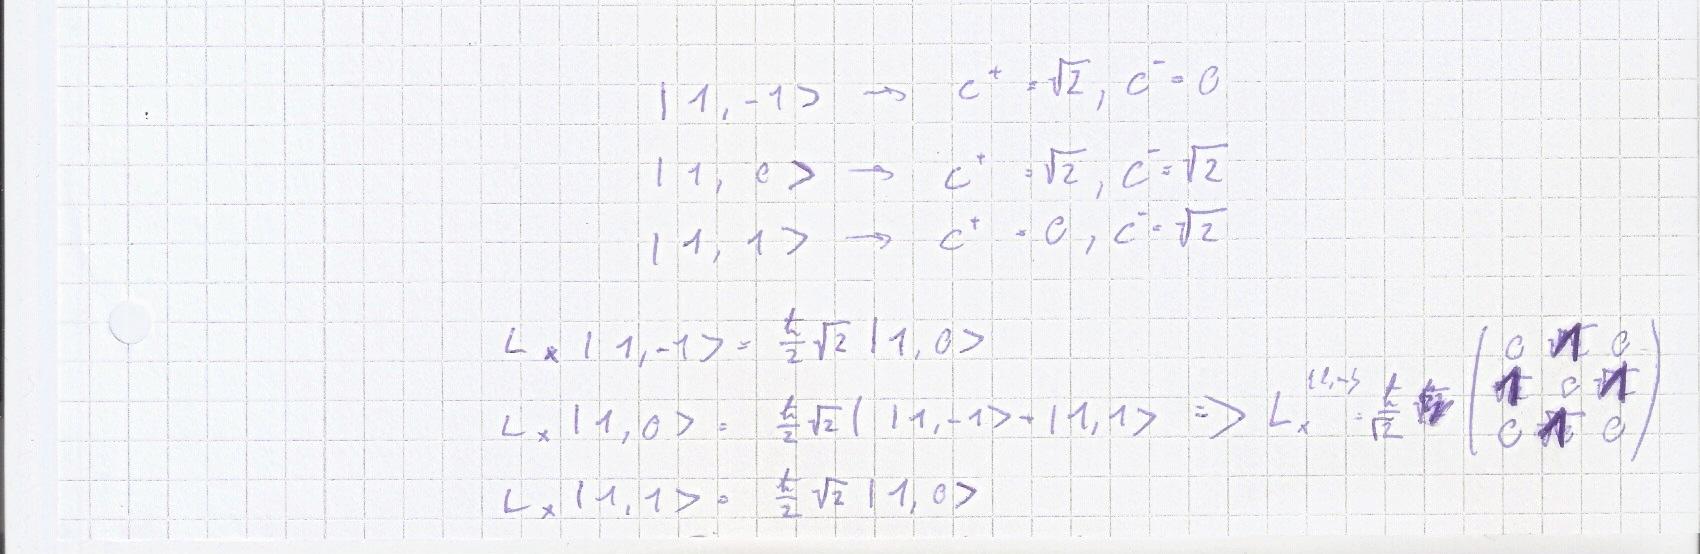 |1, -1> → c⁺ = √2, c⁻ = 0
|1, 0> → c⁺ = √2, c⁻ = √2
|1, 1> → c⁺ = 0, c⁻ = √2
Lₓ |1, -1> = ħ/2 √2 |1, 0>
Lₓ |1, 0> = ħ/2 √2 ( |1, -1> + |1, 1> => Lₓ = ħ/√2 ( 0 1 0
1 0 1
0 1 0 )
Lₓ |1, 1> = ħ/2 √2 |1, 0>